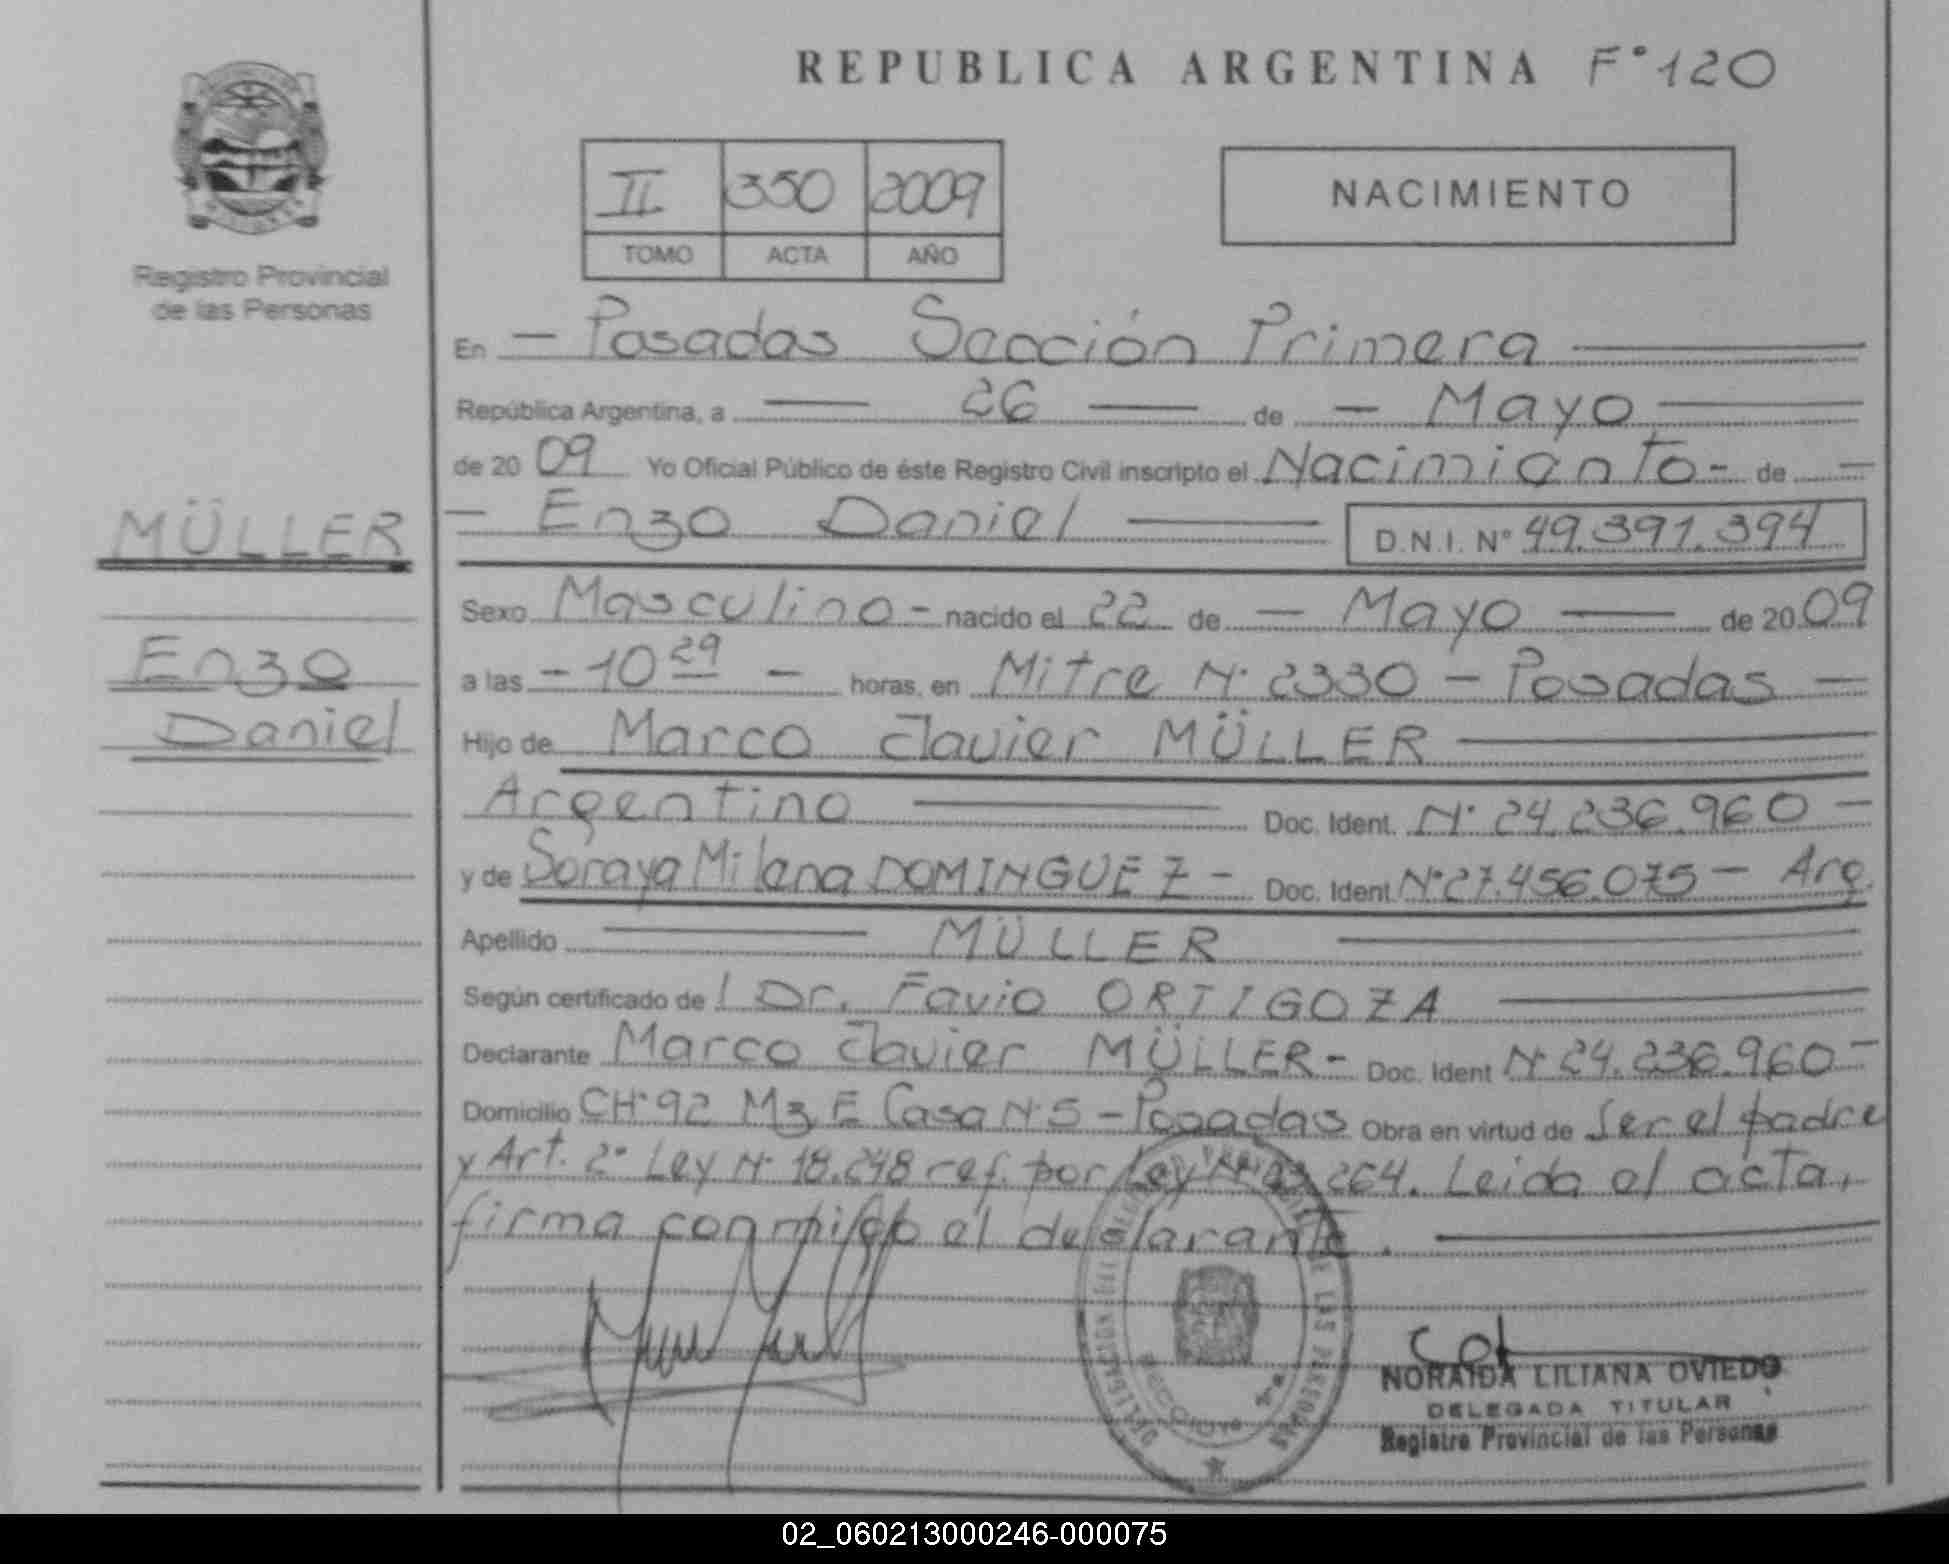 REPUBLICA ARGENTINA F° 120
II 350 2009
TOMO ACTA AÑO
NACIMIENTO
Registro Provincial
de las Personas
MÜLLER
Enzo
Daniel
En - Posadas Sección Primera
República Argentina, a 26 de - Mayo
de 2009 Yo Oficial Público de éste Registro Civil inscripto el Nacimiento - de -
- Enzo Daniel D.N.I. N° 49.391.394
Sexo Masculino - nacido el 22 de - Mayo de 2009
a las - 10 29 - horas, en Mitre N° 2330 - Posadas -
Hijo de Marco Javier MÜLLER
Argentino Doc. Ident. N° 24.236.960 -
y de Soraya Milena DOMINGUEZ - Doc. Ident. N° 27.456.075 - Arg.
Apellido MÜLLER
Según certificado de l Dr. Favio ORTIGOZA
Declarante Marco Javier MÜLLER - Doc. Ident N° 24.236.960 -
Domicilio CH° 92 Mz E Casa N° 5 - Posadas Obra en virtud de Ser el padre
y Art. 2° Ley N° 18.248 ref. por Ley N° 23.264. Leida el acta,
firma conmigo el declarante.
DELEGACION DEL REGISTRO PROVINCIAL DE LAS PERSONAS
SECCION 1ra.
NORAIDA LILIANA OVIEDO
DELEGADA TITULAR
Registro Provincial de las Personas
02_060213000246-000075